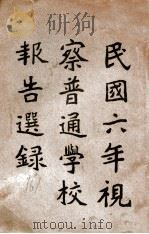 研究
民國六年視
察普通學校
報告選録
mtoou.info